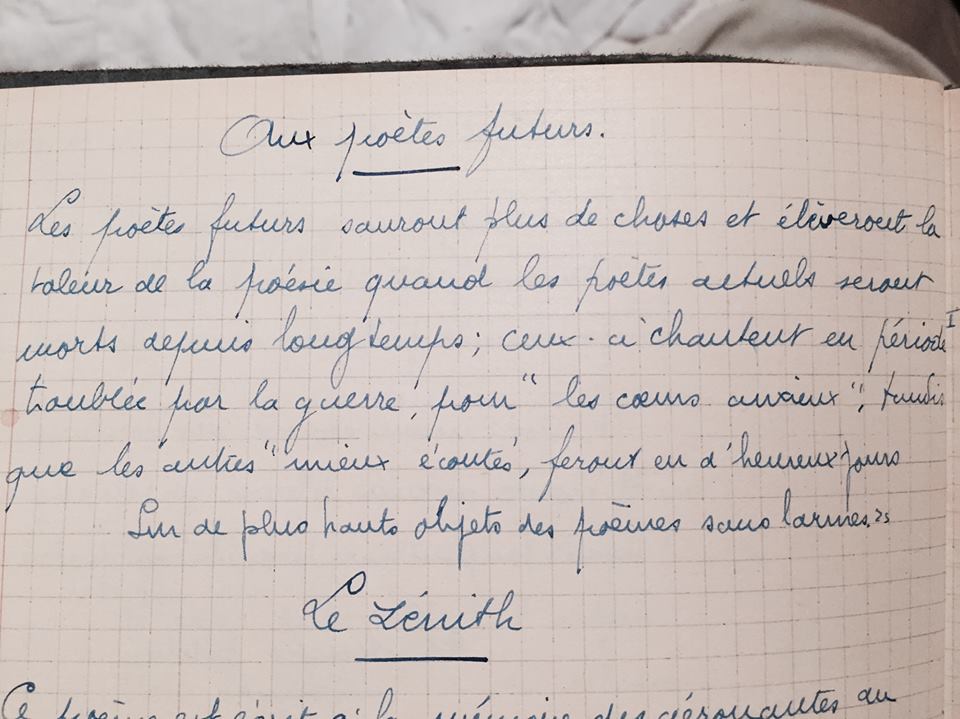 Aux poètes futurs.
Les poètes futurs sauront plus de choses et élèveront la
valeur de la poésie quand les poètes actuels seront
morts depuis longtemps; ceux-ci chantent en période
troublée par la guerre, pour "les cœurs anxieux", tandis
que les "autres" mieux écoutés, feront en d'heureux jours
Sur de plus hauts objets des poèmes sans larmes.»
Le Zénith
Ce poème est écrit à la mémoire des aéronautes du